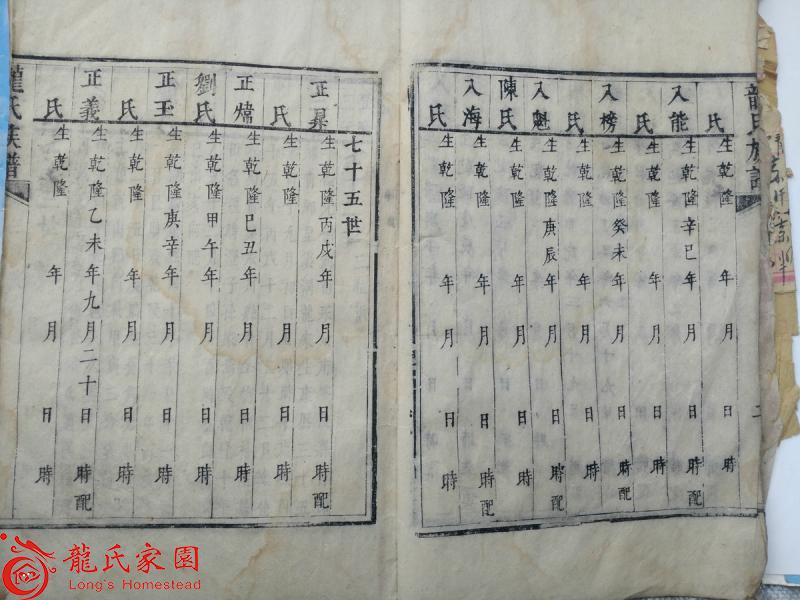 龍氏族譜
二
氏 生乾隆 年 月 日 時
入能 生乾隆辛巳 年 月 日 時配
氏 生乾隆 年 月 日 時
入榜 生乾隆癸未 年 月 日 時配
氏 生乾隆 年 月 日 時
入魁 生乾隆庚辰 年 月 日 時配
陳氏 生乾隆 年 月 日 時
入海 生乾隆 年 月 日 時配
氏 生乾隆 年 月 日 時
七十五世
正晃 生乾隆丙戌 年 月 日 時配
氏 生乾隆 年 月 日 時
正煒 生乾隆己丑年 月 日 時配
劉氏 生乾隆甲午年 月 日 時
正玉 生乾隆庚辛年 月 日 時配
氏 生乾隆 年 月 日 時
正義 生乾隆乙未年九月二十日 時配
氏 生乾隆 年 月 日 時
龍氏族譜
龍氏家園
Long's Homestead